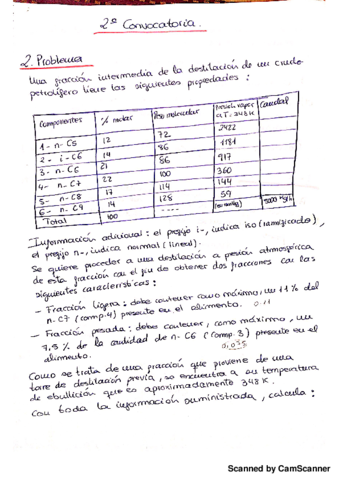 2ª Convocatoria.
2. Problema
Una fracción intermedia de la destilación de un crudo
petrolífero tiene las siguientes propiedades :
Componentes % molar Peso molecular Presión vapor a T. 348K Caudal
1- n-C5 12 72 2422
2- i-C6 14 86 1181
3- n-C6 21 86 917
4- n-C7 22 100 360
5- n-C8 17 114 144
6- n-C9 14 128 59
Total 100 ---- (mmHg) 5000 kg/h
Información adicional : el prefijo i-, indica iso (ramificado),
el prefijo n-, indica normal (lineal).
Se quiere proceder a una destilación a presión atmosférica
de esta fracción con el fin de obtener dos fracciones con las
siguientes características :
- Fracción ligera : debe contener como máximo, un 11% del
n-C7 (comp. 4) presente en el alimento. 0.11
- Fracción pesada : debe contener, como máximo, un
7,5 % de la cantidad de n-C6 (comp. 3) presente en el
alimento. 0,075
Como se trata de una fracción que proviene de una
torre de destilación previa, se encuentra a su temperatura
de ebullición que es aproximadamente 348K.
Con toda la información suministrada, calcula :
Scanned by CamScanner